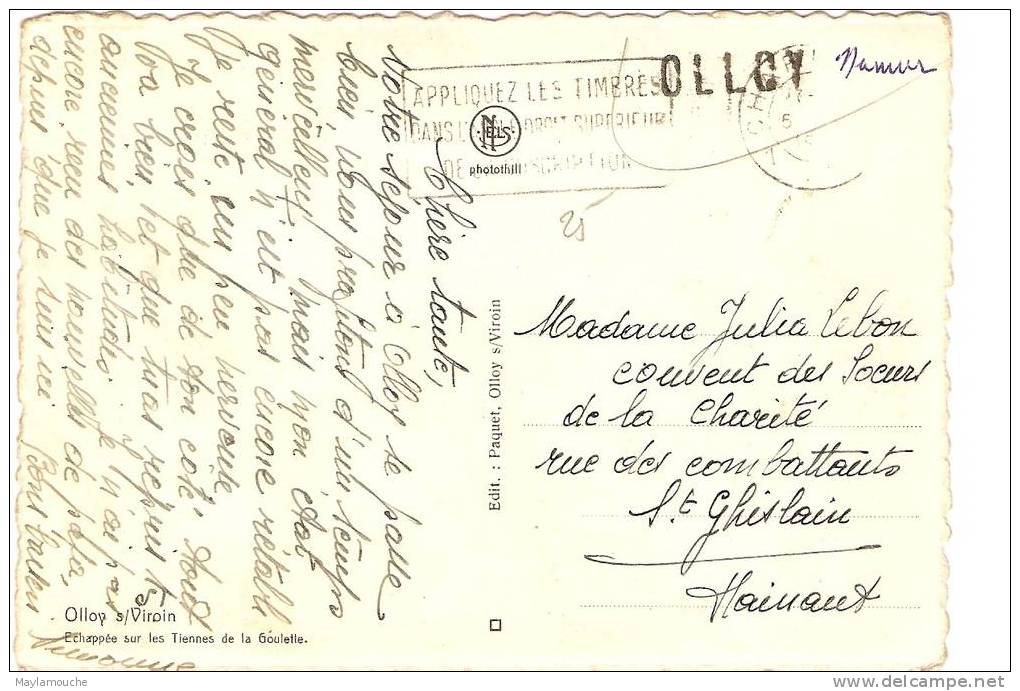 APPLIQUEZ LES TIMBRES
DANS L'ANGLE DROIT SUPERIEUR
DE LA SUSCRIPTION
OLLOY
Namur
NELS
photothill
25
Chère tante,
Notre séjour à Olloy se passe
bien. Nous profitons d'un temps
merveilleux mais mon état
général n'est pas encore rétabli
Je reste un peu nerveuse
Je crois que de ton côté, tout
va bien et que tu as repris tes
anciennes habitudes. Je n'ai pas
encore reçu des nouvelles de papa,
depuis que je suis ici. Bons baisers
Simonne
Edit. : Paquet, Olloy s/Viroin
Madame Julia Lebon
couvent des Soeurs
de la Charité
rue des combattants
St Ghislain
Hainaut
Olloy s/Viroin
Echappée sur les Tiennes de la Goulette.
Maylamouche
delcampe.net